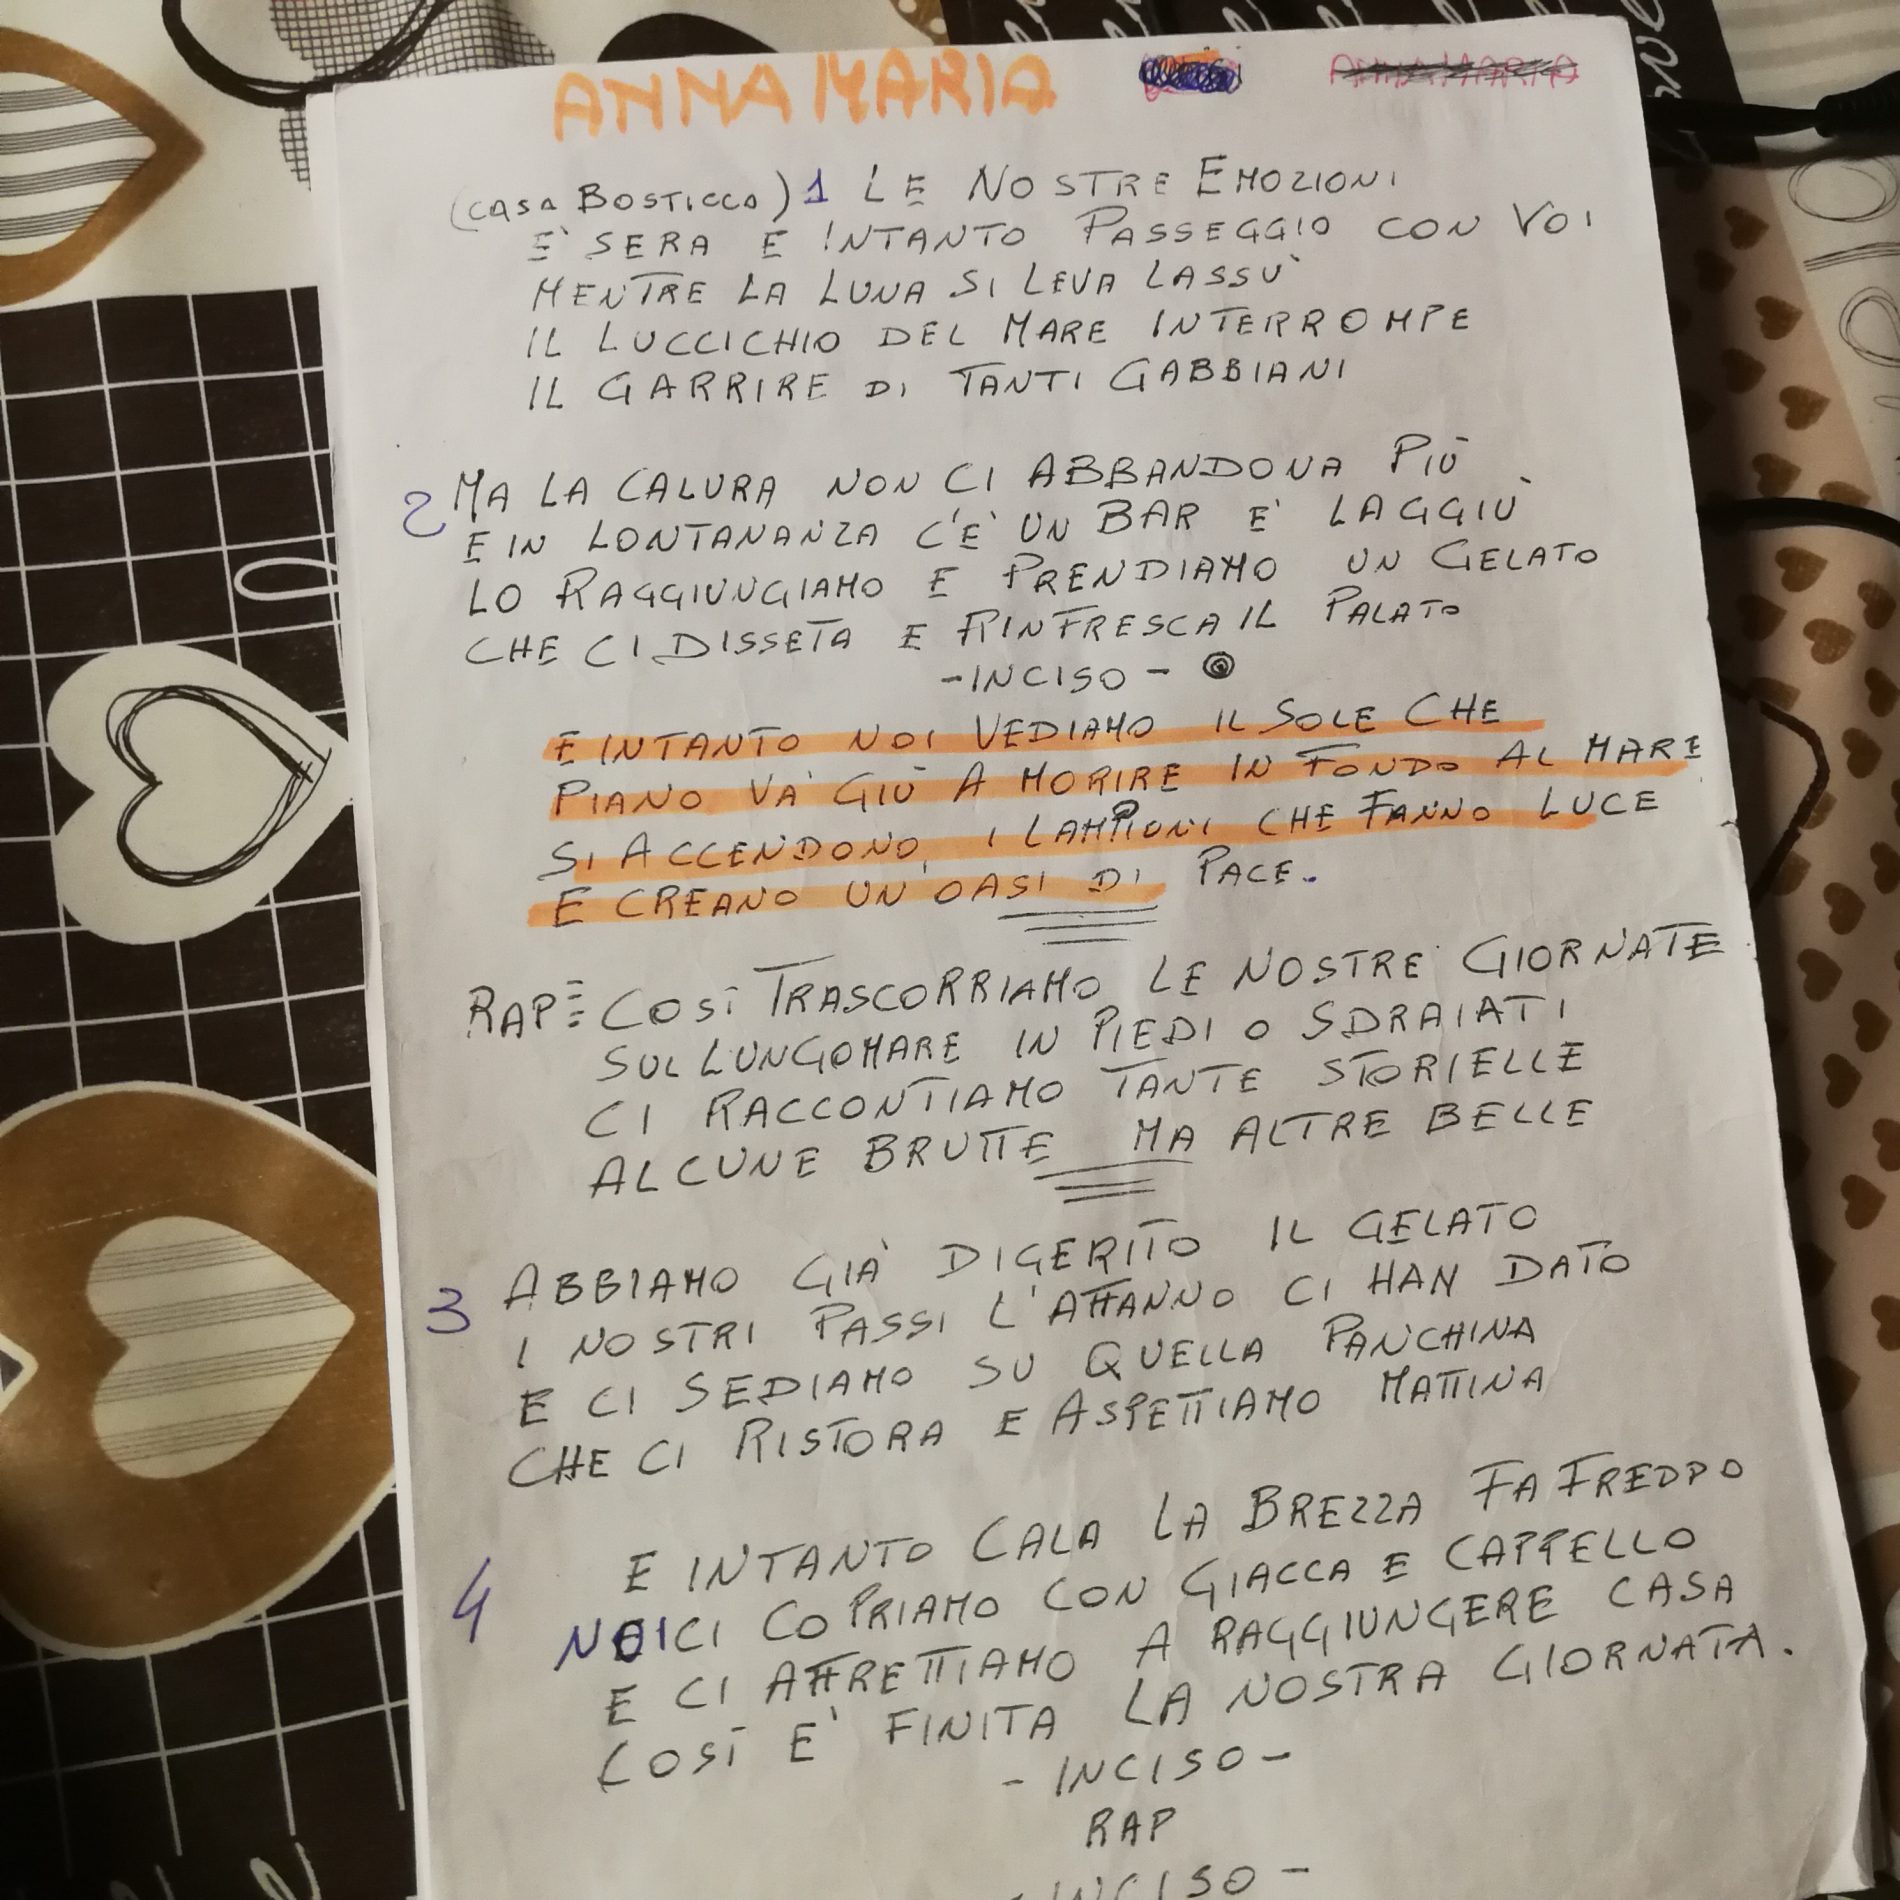 ANNA MARIA
(CASA BOSTICCO) 1 LE NOSTRE EMOZIONI
E' SERA E INTANTO PASSEGGIO CON VOI
MENTRE LA LUNA SI LEVA LASSÙ
IL LUCCICHIO DEL MARE INTERROMPE
IL GARRIRE DI TANTI GABBIANI
2 MA LA CALURA NON CI ABBANDONA PIÙ
E IN LONTANANZA C'E' UN BAR E' LAGGIÙ
LO RAGGIUNGIAMO E PRENDIAMO UN GELATO
CHE CI DISSETA E RINFRESCA IL PALATO
-INCISO-
E INTANTO NOI VEDIAMO IL SOLE CHE
PIANO VA' GIÙ A MORIRE IN FONDO AL MARE
SI ACCENDONO I LAMPIONI CHE FANNO LUCE
E CREANO UN'OASI DI PACE.
RAP COSÌ TRASCORRIAMO LE NOSTRE GIORNATE
SUL LUNGOMARE IN PIEDI O SDRAIATI
CI RACCONTIAMO TANTE STORIELLE
ALCUNE BRUTTE MA ALTRE BELLE
3 ABBIAMO GIÀ DIGERITO IL GELATO
I NOSTRI PASSI L'AFFANNO CI HAN DATO
E CI SEDIAMO SU QUELLA PANCHINA
CHE CI RISTORA E ASPETTIAMO MATTINA
4 E INTANTO CALA LA BREZZA FA FREDDO
NOI CI COPRIAMO CON GIACCA E CAPPELLO
E CI AFFRETTIAMO A RAGGIUNGERE CASA
COSÌ E' FINITA LA NOSTRA GIORNATA.
-INCISO-
RAP
-INCISO-